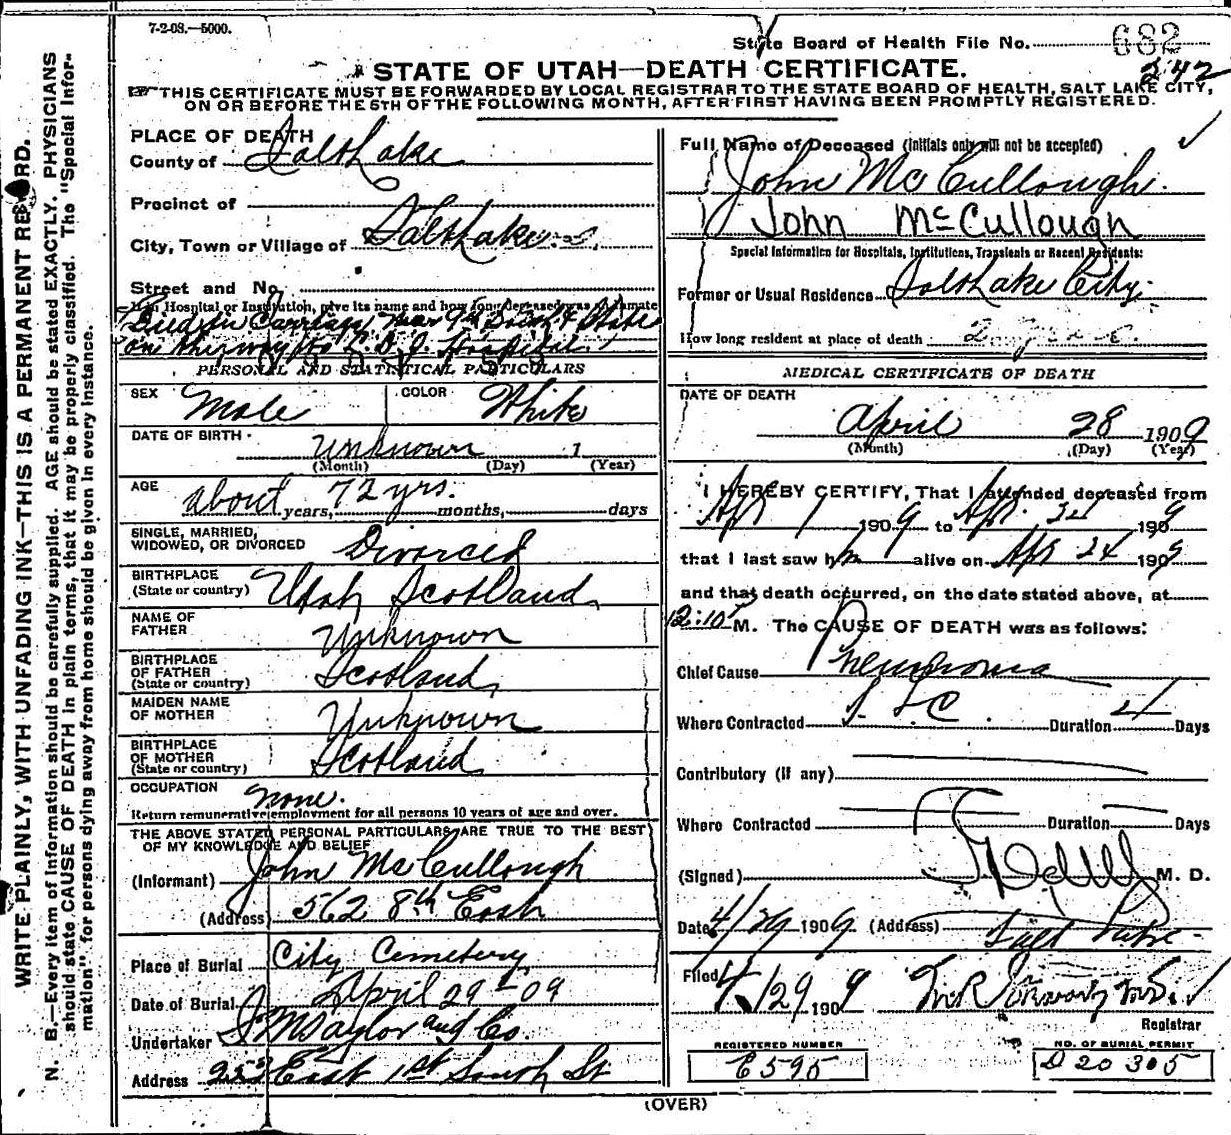 7-2-08.—5000.
State Board of Health File No. 682
242
STATE OF UTAH—DEATH CERTIFICATE.
THIS CERTIFICATE MUST BE FORWARDED BY LOCAL REGISTRAR TO THE STATE BOARD OF HEALTH, SALT LAKE CITY,
ON OR BEFORE THE 5TH OF THE FOLLOWING MONTH, AFTER FIRST HAVING BEEN PROMPTLY REGISTERED.
WRITE PLAINLY, WITH UNFADING INK—THIS IS A PERMANENT RECORD.
N. B.—Every item of information should be carefully supplied. AGE should be stated EXACTLY. PHYSICIANS
should state CAUSE OF DEATH in plain terms, that it may be properly classified. The "Special Infor-
mation" for persons dying away from home should be given in every instance.
PLACE OF DEATH
County of Salt Lake
Precinct of
City, Town or Village of Salt Lake
Street and No.
If in Hospital or Institution, give its name and how long deceased was inmate
Died in Carriage near 9th South & State
on the way to Hospital
PERSONAL AND STATISTICAL PARTICULARS
SEX Male COLOR White
DATE OF BIRTH Unknown 1
(Month) (Day) (Year)
AGE about 72 yrs.
years, months, days
SINGLE, MARRIED,
WIDOWED, OR DIVORCED Divorced
BIRTHPLACE
(State or country) Utah Scotland
NAME OF
FATHER Unknown
BIRTHPLACE
OF FATHER
(State or country) Scotland
MAIDEN NAME
OF MOTHER Unknown
BIRTHPLACE
OF MOTHER
(State or country) Scotland
OCCUPATION none.
Return remunerative employment for all persons 10 years of age and over.
THE ABOVE STATED PERSONAL PARTICULARS ARE TRUE TO THE BEST
OF MY KNOWLEDGE AND BELIEF
(Informant) John McCullough
(Address) 562 8th East
Place of Burial City Cemetery
Date of Burial April 29th-09
Undertaker S M Taylor and Co.
Address 253 East 1st South St
Full Name of Deceased (Initials only will not be accepted)
John McCullough.
John McCullough
Special Information for Hospitals, Institutions, Transients or Recent Residents:
Former or Usual Residence Salt Lake City
How long resident at place of death
MEDICAL CERTIFICATE OF DEATH
DATE OF DEATH
April 28 1909
(Month) (Day) (Year)
I HEREBY CERTIFY, That I attended deceased from
Apr 1 1909 to Apr. 24 1909
that I last saw him alive on Apr 24 1909
and that death occurred, on the date stated above, at
12:10 M. The CAUSE OF DEATH was as follows:
Chief Cause Pneumonia
Where Contracted S. L. C. Duration 21 Days
Contributory (if any)
Where Contracted Duration Days
(Signed) M. D.
Date 4/29 1909. (Address) Salt Lake
Filed 4/29 1909
Registrar
REGISTERED NUMBER
E595
NO. OF BURIAL PERMIT
D 20305
(OVER)